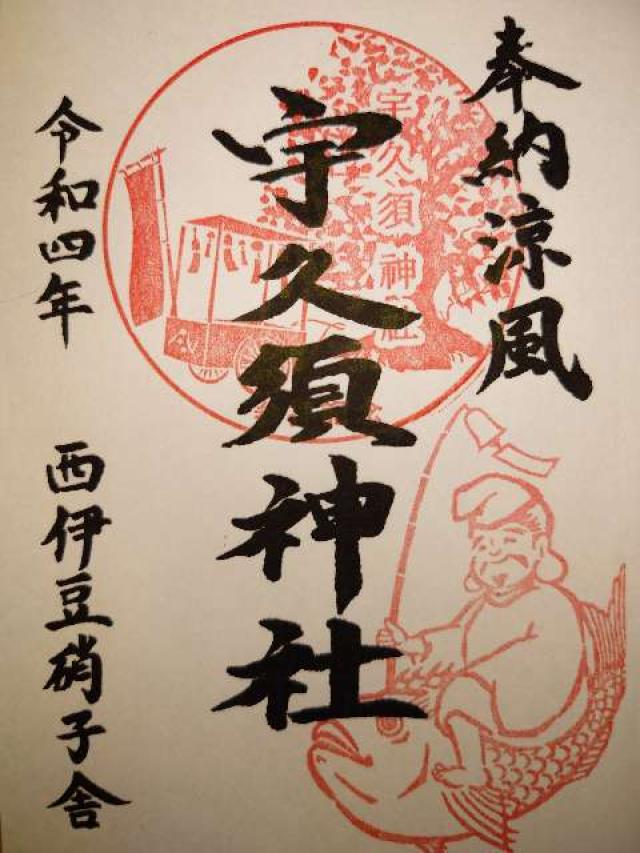 奉納涼風
宇久須神社
宇久須神社
令和四年
西伊豆硝子舎